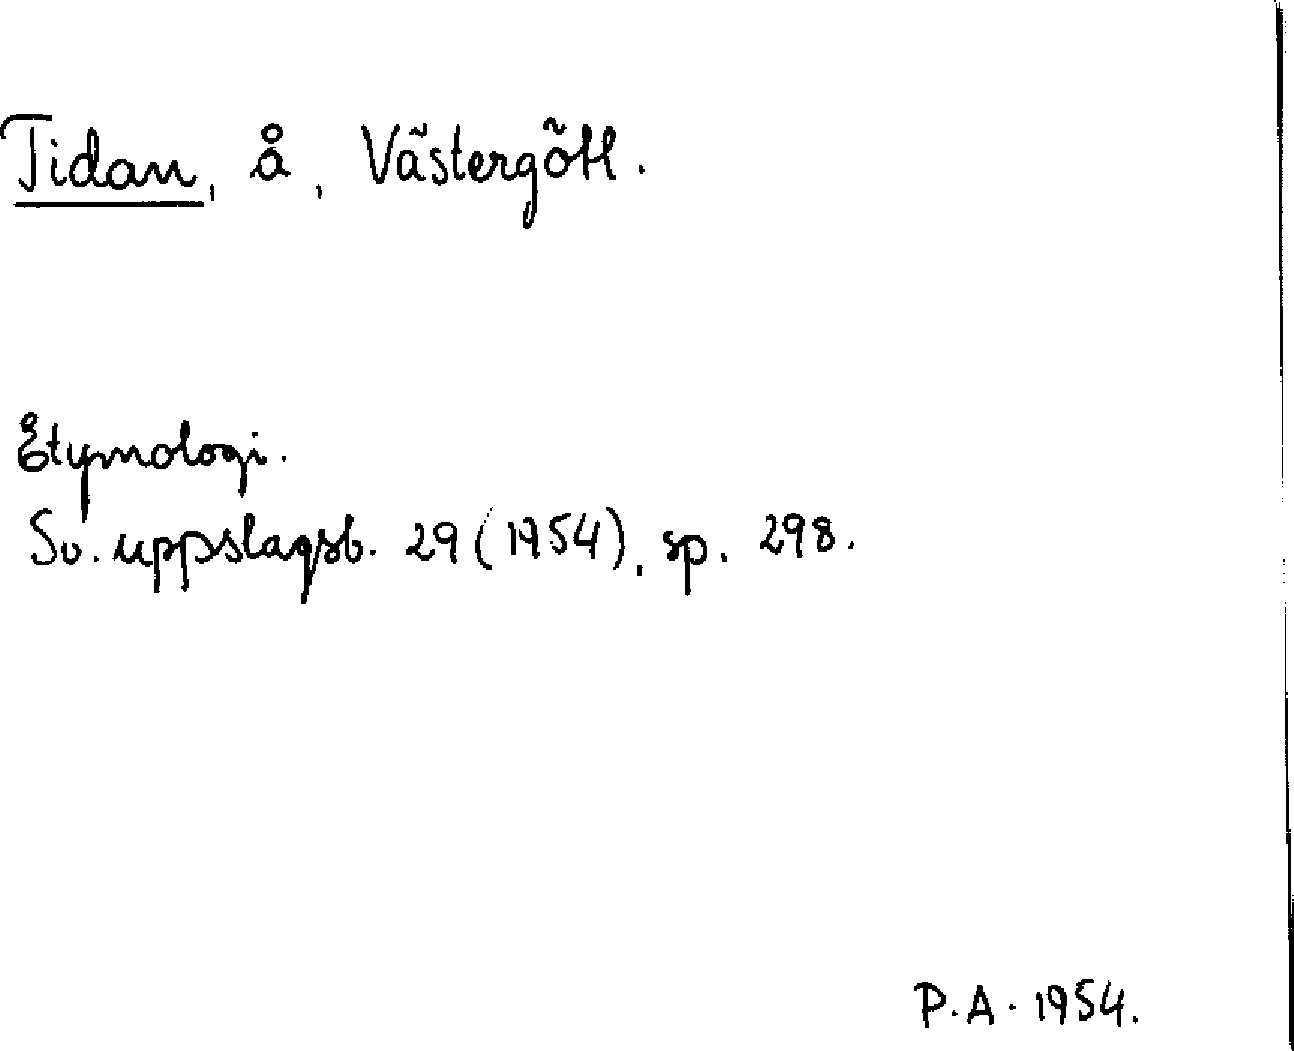 Tidan, å, Västergötl.
Etymologi.
Sv. uppslagsb. 29 (1954), sp. 298.
P.A. 1954.